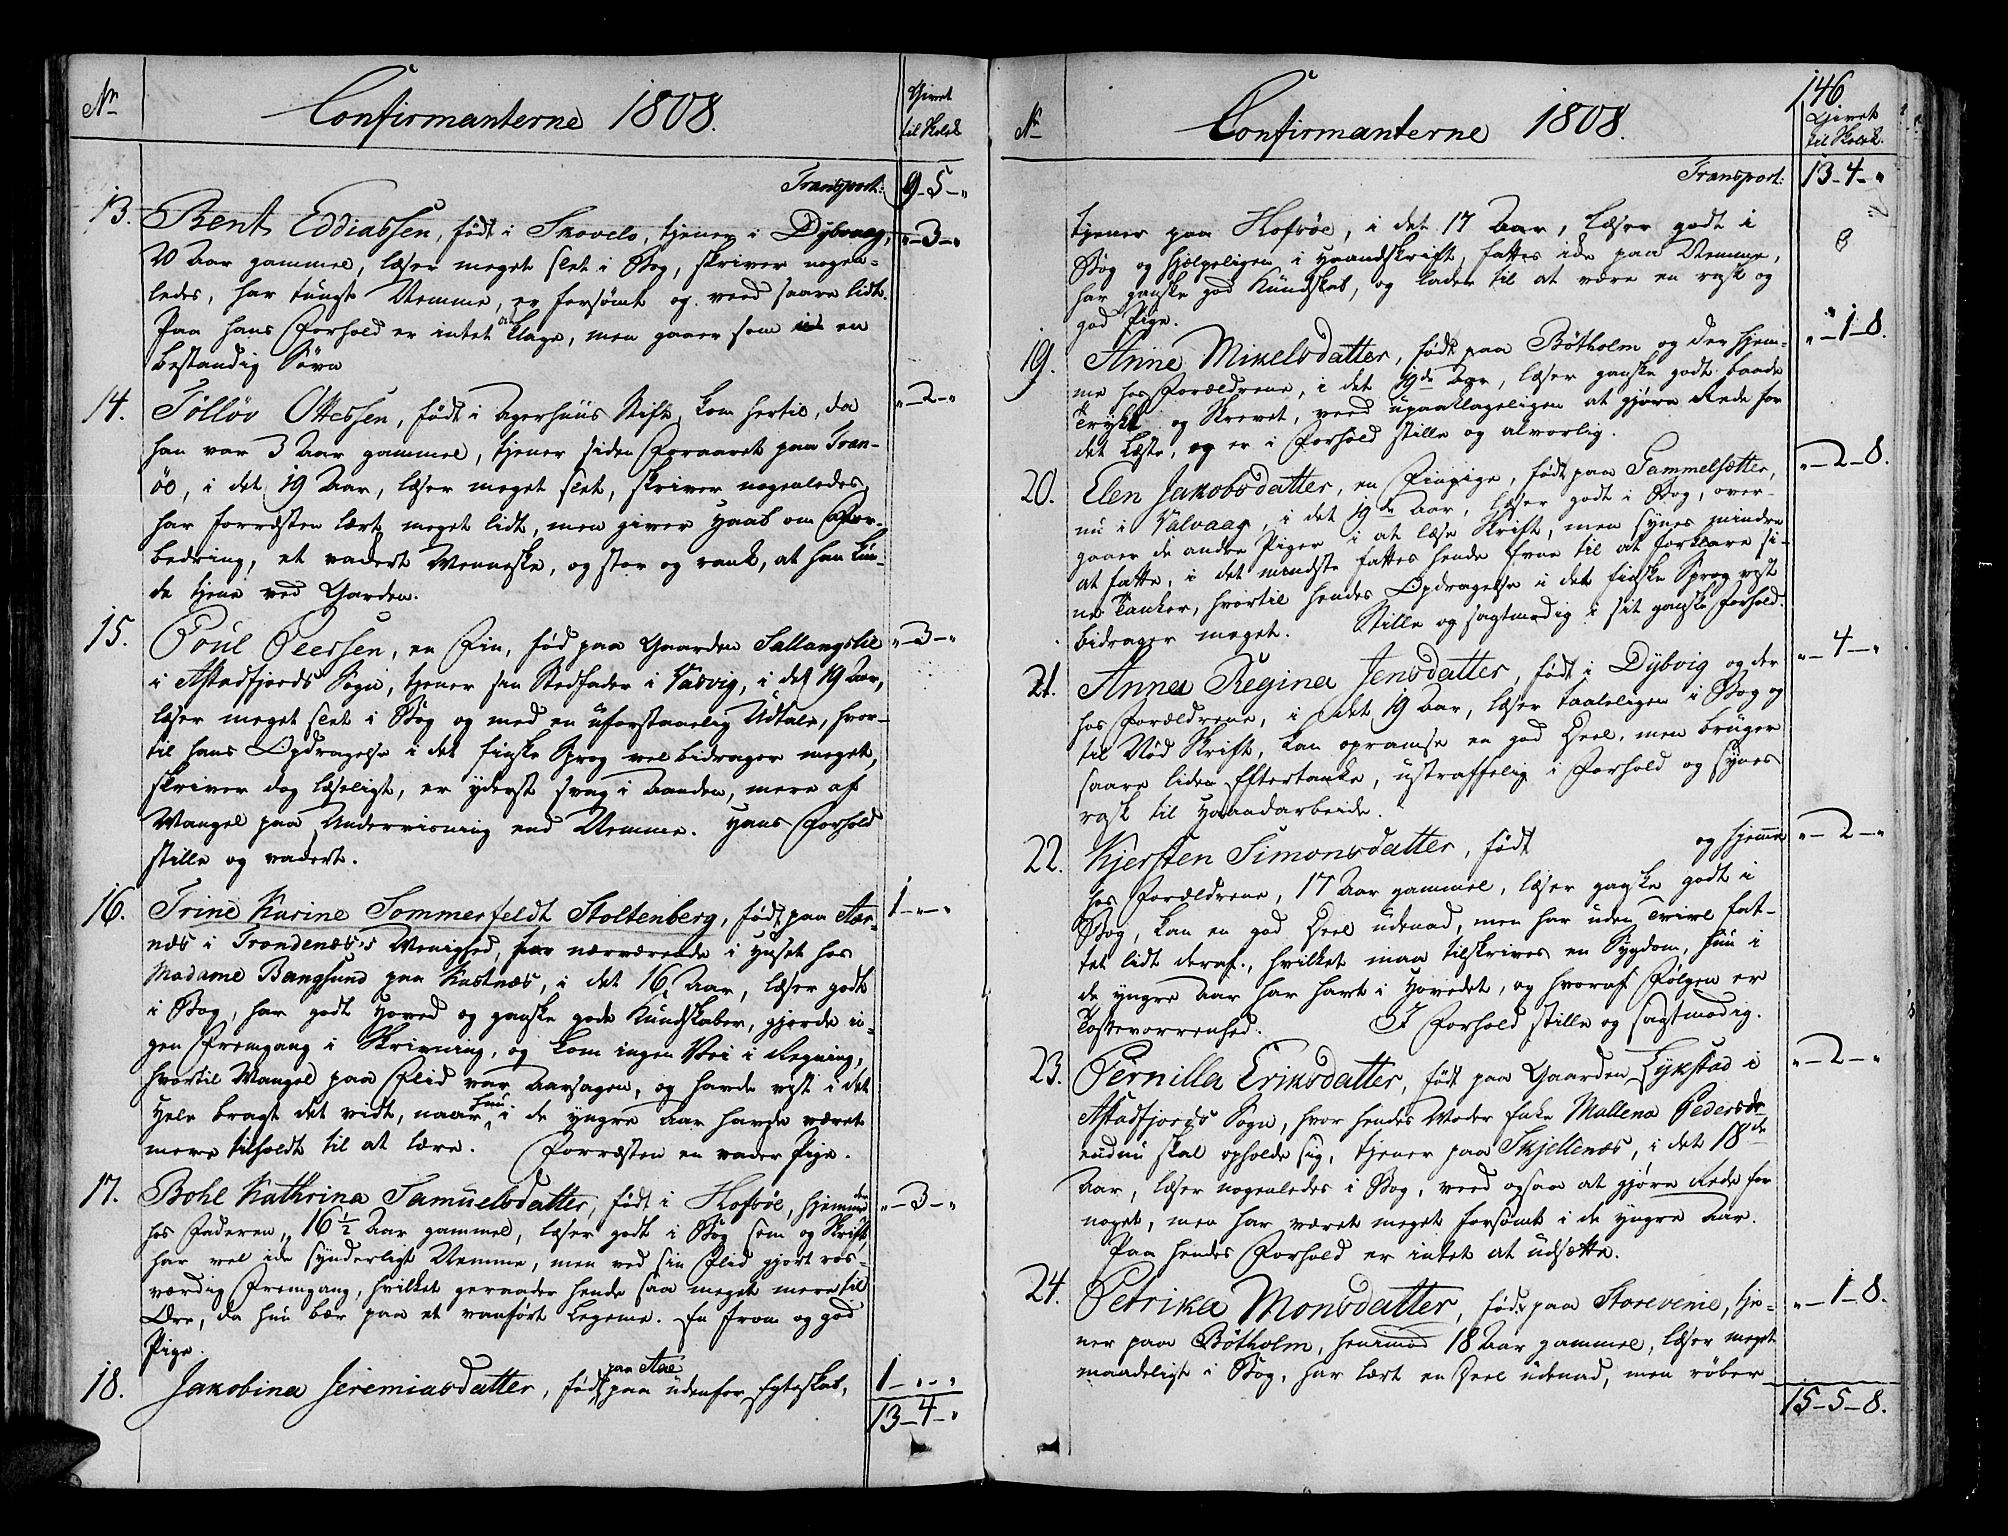 No
Confirmanterne 1808.
Givet
til Skolek.
Transport: 9-5-"
13. Bent Eddiassen, født i Skovels, tjener i Dybvaag, "-3-"
20 Aar gammel, læser meget slet i Bog, skriver nogen-
ledes, har tungt Nemme, er forsømt og veed saare lidt.
Paa hans Forhold er intet at klage, men gaaer som i en
bestandig Søvn
14. Tølløv Ottessen, født i Agerhuus Stift, kom hertil, da "-2-"
han var 3 Aar gammel, tjener siden Foraaret paa Tran-
öe, i det 19 Aar, læser meget slet, skriver nogenledes,
har forresten lært meget lidt, men giver Haab om For-
bedring, et vakert Menneske, og stor og rank, at han kun-
de tjene ved Garden.
15. Poul Peersen, en Fin, fød paa Gaarden Sallangslie "-3-"
i Astafjords Sogn, tjener sin Stedfader i Vasvig, i det 19 Aar,
læser meget slet i Bog og med en uforstaaelig Udtale, hvor-
til hans Opdragelse i det finske Sprog vel bidrager meget,
skriver dog læseligt, er yderst svag i Aanden, mere af
Mangel paa Underviisning end Nemme. Hans Forhold
stille og vakert.
16. Trine Karine Sommerfeldt Stoltenberg, født paa Aar- 1-"-"
næs i Trondenæs's Menighed, nærværende i Huset hos
Madame Bangsund paa Kastnæs, i det 16 Aar, læser godt
i Bog, har godt Hoved og ganske gode Kundskaber, gjorde in-
gen Fremgang i Skrivning, og kom ingen Vei i Regning,
hvortil Mangel paa Flid var Aarsagen, og havde vist i det
Hele bragt det vidt, naar hun i de yngre Aar havde været
mere tilholdt til at lære. Forresten en vaker Pige.
17. Bohl Kathrina Samuelsdatter, født i Hofsøe, hjemme "-3-"
hos Faderen, 16 1/2 Aar gammel, læser godt i Bog som og Skrift,
har vel ikke synderligt Nemme, men ved sin Flid gjort roes-
værdig Fremgang, hvilket geraader hende saa meget mere til
Ære, da hun bær paa et vanført Legeme. En from og god
Pige.
18. Jakobina Jeremiasdatter, født paa Aae udenfor Egteskab, 1-"-"
13-4-"
146
No
Confirmanterne 1808.
Givet
til Skolek.
Transport: 13-4-"
tjener paa Hofsøe, i det 17 Aar, læser godt i
Bog og hjelpeligen i Haandskrift, fattes ikke paa Nemme,
har ganske god Kundskab, og lader til at være en rask og
god Pige.
19. Anne Mikelsdatter, født paa Bøtholm og der hjem- "-1-8.
me hos Forældrene, i det 19de Aar, læser ganske godt baade
Trykt og Skrevet, veed upaaklageligen at gjøre Rede for
det Læste, og er i Forhold stille og alvorlig.
20. Elen Jakobsdatter, en Finpige, født paa Gammelsætter, "-2-8.
nu i Valvaag, i det 19de Aar, læser godt i Bog, over-
gaaer de andre Piger i at læse Skrift, men synes mindre
at fatte, i det mindste fattes hende Evne til at forklare si-
ne Tanker, hvortil hendes Opdragelse i det finske Sprog vist
bidrager meget. Stille og sagtmodig i sit ganske Forhold.
21. Anna Regina Jensdatter, født i Dybvig og der "-4-"
hos Forældrene, i det 19 Aar, læser taaleligen i Bog og
til Nød Skrift, kan opramse en god Deel, men bruger
saare liden Eftertanke, ustraffelig i Forhold og synes
rask til Haandarbeide.
22. Kjersten Simonsdatter, født og hjemme "-2-"
hos Forældrene, 17 Aar gammel, læser ganske godt i
Bog, kan en god Deel udenad, men har uden Tvivl fat-
tet lidt deraf, hvilket maa tilskrives en Sygdom, hun i
de yngre Aar har havt i Hovedet, og hvoraf Følgen er
Tossevorrenhed. I Forhold stille og sagtmodig.
23. Pernilla Eriksdatter, født paa Gaarden Lykstad i "-2-"
Astafjords Sogn, hvor hendes Moder Enke Mallena Pedersdr
endnu skal opholde sig, tjener paa Skjellenæs, i det 18de
Aar, læser nogenledes i Bog, veed ogsaa at gjøre Rede for
noget, men har været meget forsømt i de yngre Aar.
Paa hendes Forhold er intet at udsætte.
24. Petrika Monsdatter, født paa Storevenie, tje- "-1-8.
ner paa Bøtholm, henimod 18 Aar gammel, læser meget
maadeligt i Bog, har lært en Deel udenad, men røber
15-5-8.